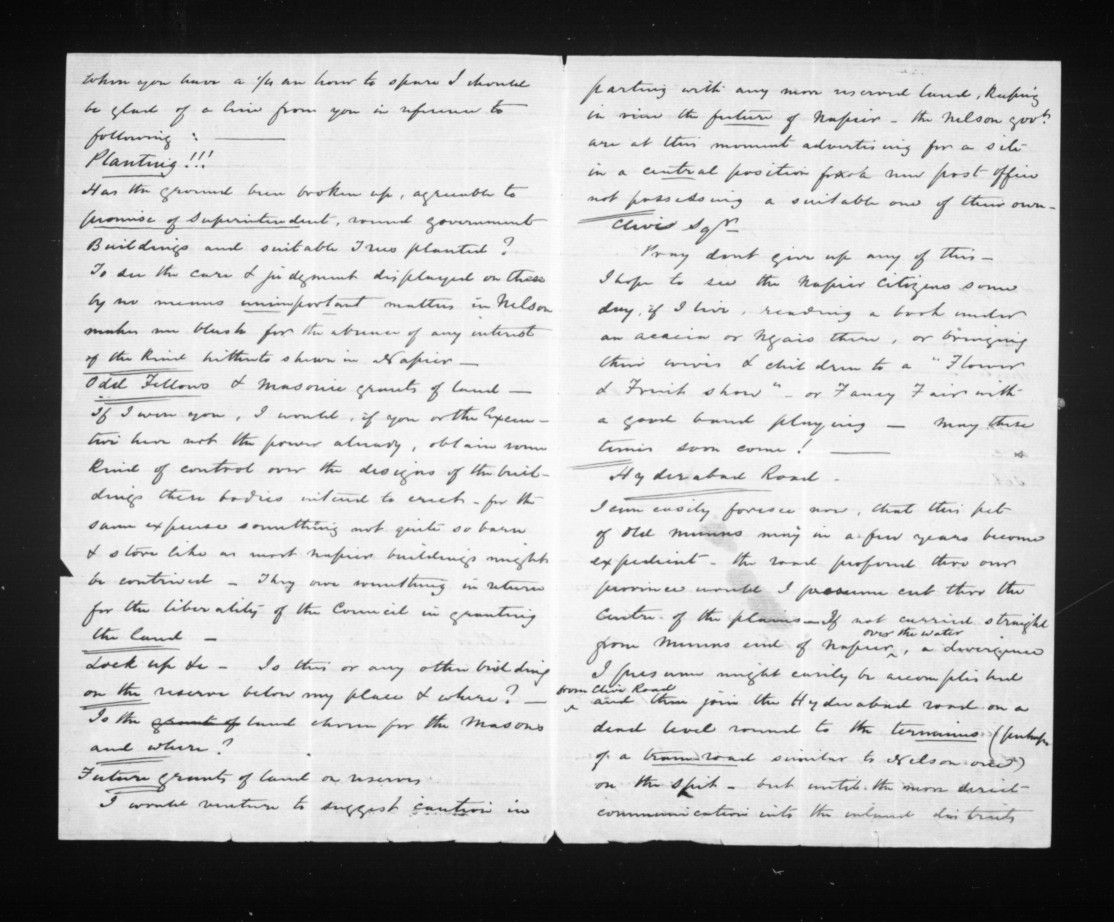 When you have a 1/4 an hour to spare I should
be glad of a line from you in reference to
following : —
Planting!!!
Has the ground been broken up, agreeable to
promise of Superintendent, round government
Buildings and suitable Trees planted?
To see the care & judgment displayed on these
by no means unimportant matters in Nelson
makes me blush for the absence of any interest
of the kind hitherto shewn in Napier —
Odd Fellows & Masonic grants of land —
If I were you, I would, if you or the Execu-
tive have not the power already, obtain some
kind of control over the designs of the buil-
dings these bodies intend to erect - for the
same expense something not quite so barn
& store like as most Napier buildings might
be contrived - They owe something in return
for the liberality of the Council in granting
the land —
Lock up &c - Is this or any other building
on the reserve below my place & where? —
Is the grant of land chosen for the Masons
and where?
Future grants of land on reserves
I would venture to suggest caution in
parting with any more reserved land, keeping
in view the future of Napier - the Nelson govt.
are at this moment advertising for a site
in a central position for a new post office
not possessing a suitable one of their own -
Clive Sqr —
Pray dont give up any of this —
I hope to see the Napier Citizens some
day, if I live, reading a book under
an acacia or Ngaio there, or bringing
their wives & children to a "Flower
& Fruit show" - or Fancy Fair with
a good band playing — May these
times soon come! —
Hyderabad Road -
I can easily foresee now, that this pet
of old Munns may in a few years become
expedient - the road proposed thro our
province would I presume cut thro the
Centre of the plains - If not carried straight
from Munns end of Napier, over the water, a divergence
I presume might easily be accomplished
from Clive Road
and then join the Hyderabad road on a
dead level round to the terminus (perhaps
of a tram road similar to Nelson over)
on the Spit - but until the more direct
communication into the inland districts